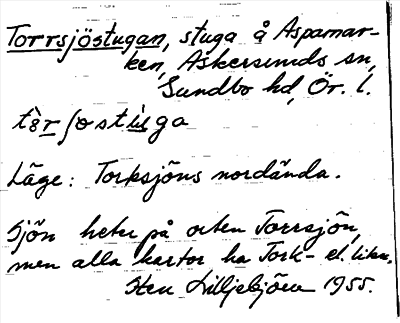 Torrsjöstugan, stuga å Aspamar-
ken, Askersunds sn,
Sundbo hd, Ör. l.
tòr ʃostùga
Läge: Torksjöns nordända.
Sjön heter på orten Torrsjön,
men alla kartor ha Tork- el. likn.
Sten Lilljebjörn 1955.